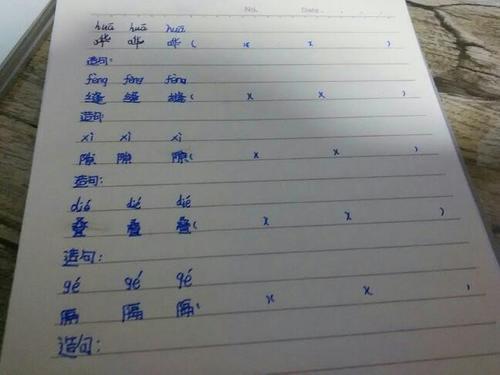 No. Date . .
huā huā huā
哗 哗 哗 ( x x )
造句:
fèng fèng fèng
缝 缝 缝( x x )
造句:
xì xì xì
隙 隙 隙( x x )
造句:
dié dié dié
叠 叠 叠( x x )
造句:
gé gé gé
隔 隔 隔( x x )
造句: